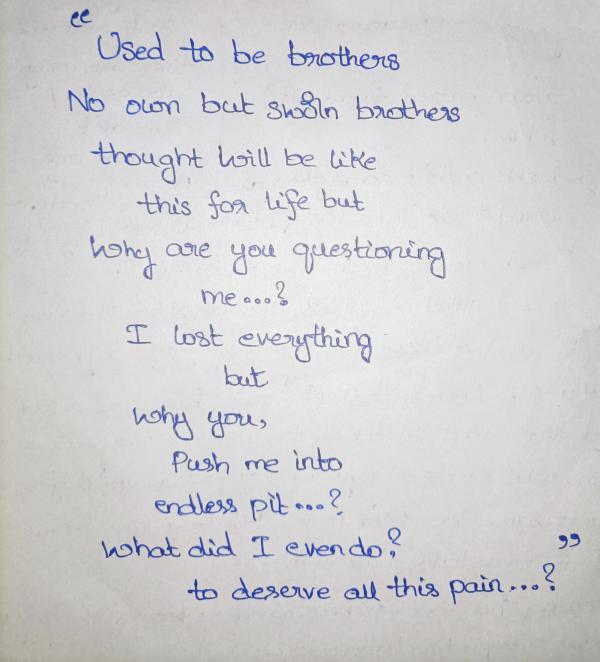 “
Used to be brothers
No own but swoln brothers
thought will be like
this for life but
Why are you questioning
me...?
I lost everything
but
Why you,
Push me into
endless pit...?
What did I even do?
”
to deserve all this pain...?